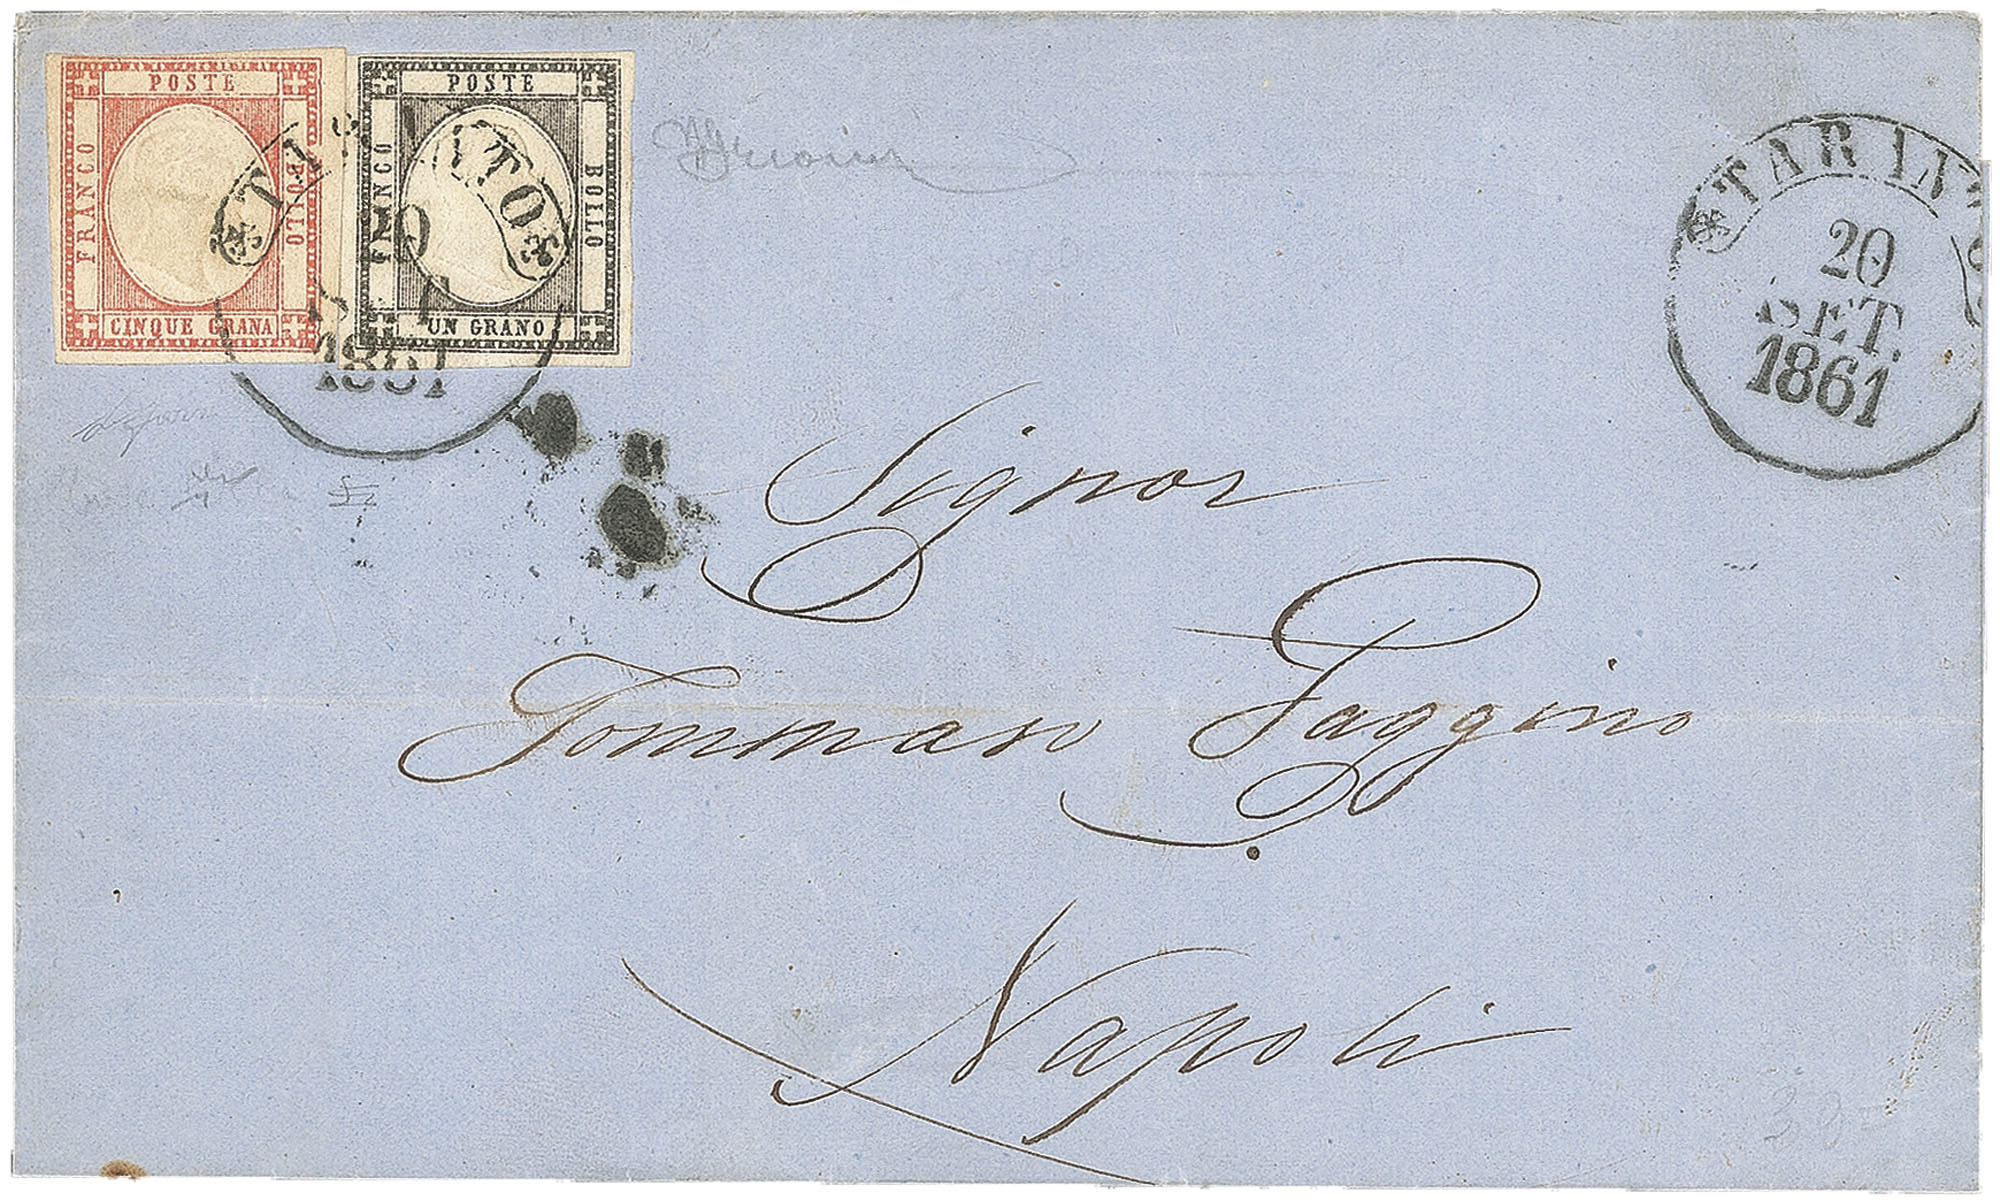 POSTE
FRANCO
BOLLO
CINQUE GRANA
POSTE
FRANCO
BOLLO
UN GRANO
1861
TARANTO
20
SET.
1861
Signor
Tommaso Faggino
Napoli